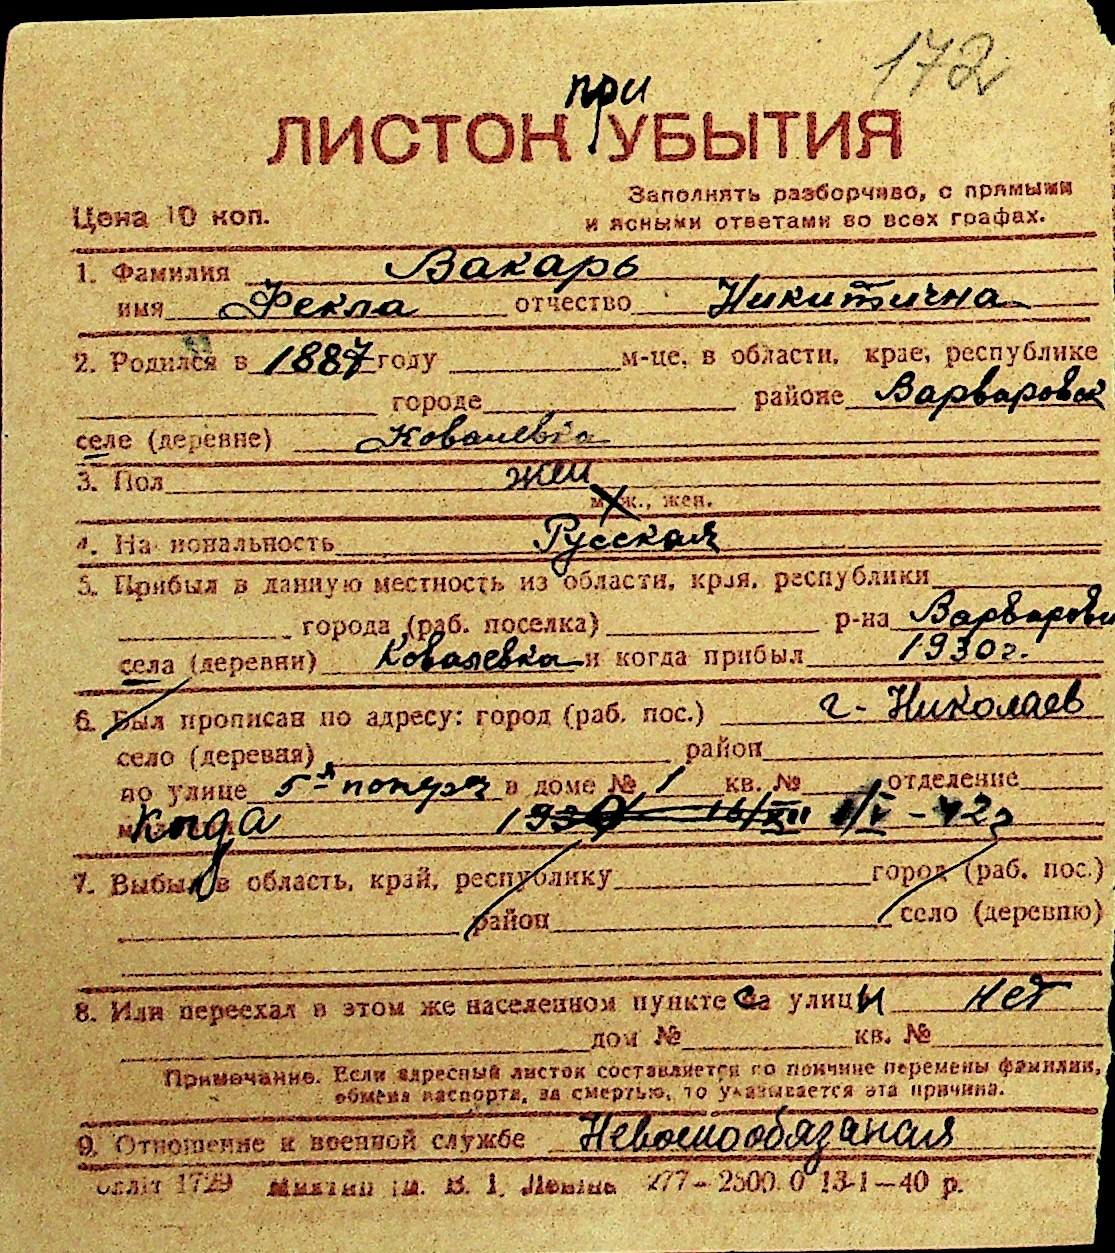 172
при
ЛИСТОК УБЫТИЯ
Заполнять разборчиво, с прямыми
Цена 10 коп. и ясными ответами во всех графах.
1. Фамилия Вакарь
имя Фекла отчество Никитична
2. Родился в 1887 году м-це, в области, крае, республике
городе районе Варваровск
селе (деревне) Ковалевка
3. Пол жен
муж., жен.
4. Национальность Русская
5. Прибыл в данную местность из области, края, республики
города (раб. поселка) р-на Варваровск
села (деревни) Ковалевка и когда прибыл 1930 г.
6. Был прописан по адресу: город (раб. пос.) г. Николаев
село (деревня) район
по улице 5-я попереч в доме № 1 кв. № отделение
Когда 1939 16/XII 1/V - 42 г
7. Выбыл в область, край, республику город (раб. пос.)
район село (деревню)
8. Или переехал в этом же населенном пункте са улицы нет
дом № кв. №
Примечание. Если адресный листок составляется по причине перемены фамилии,
обмена паспорта, за смертью, то указывается эта причина.
9. Отношение к военной службе Невоенообязаная
1729 277-2500.0 13-1-40 р.